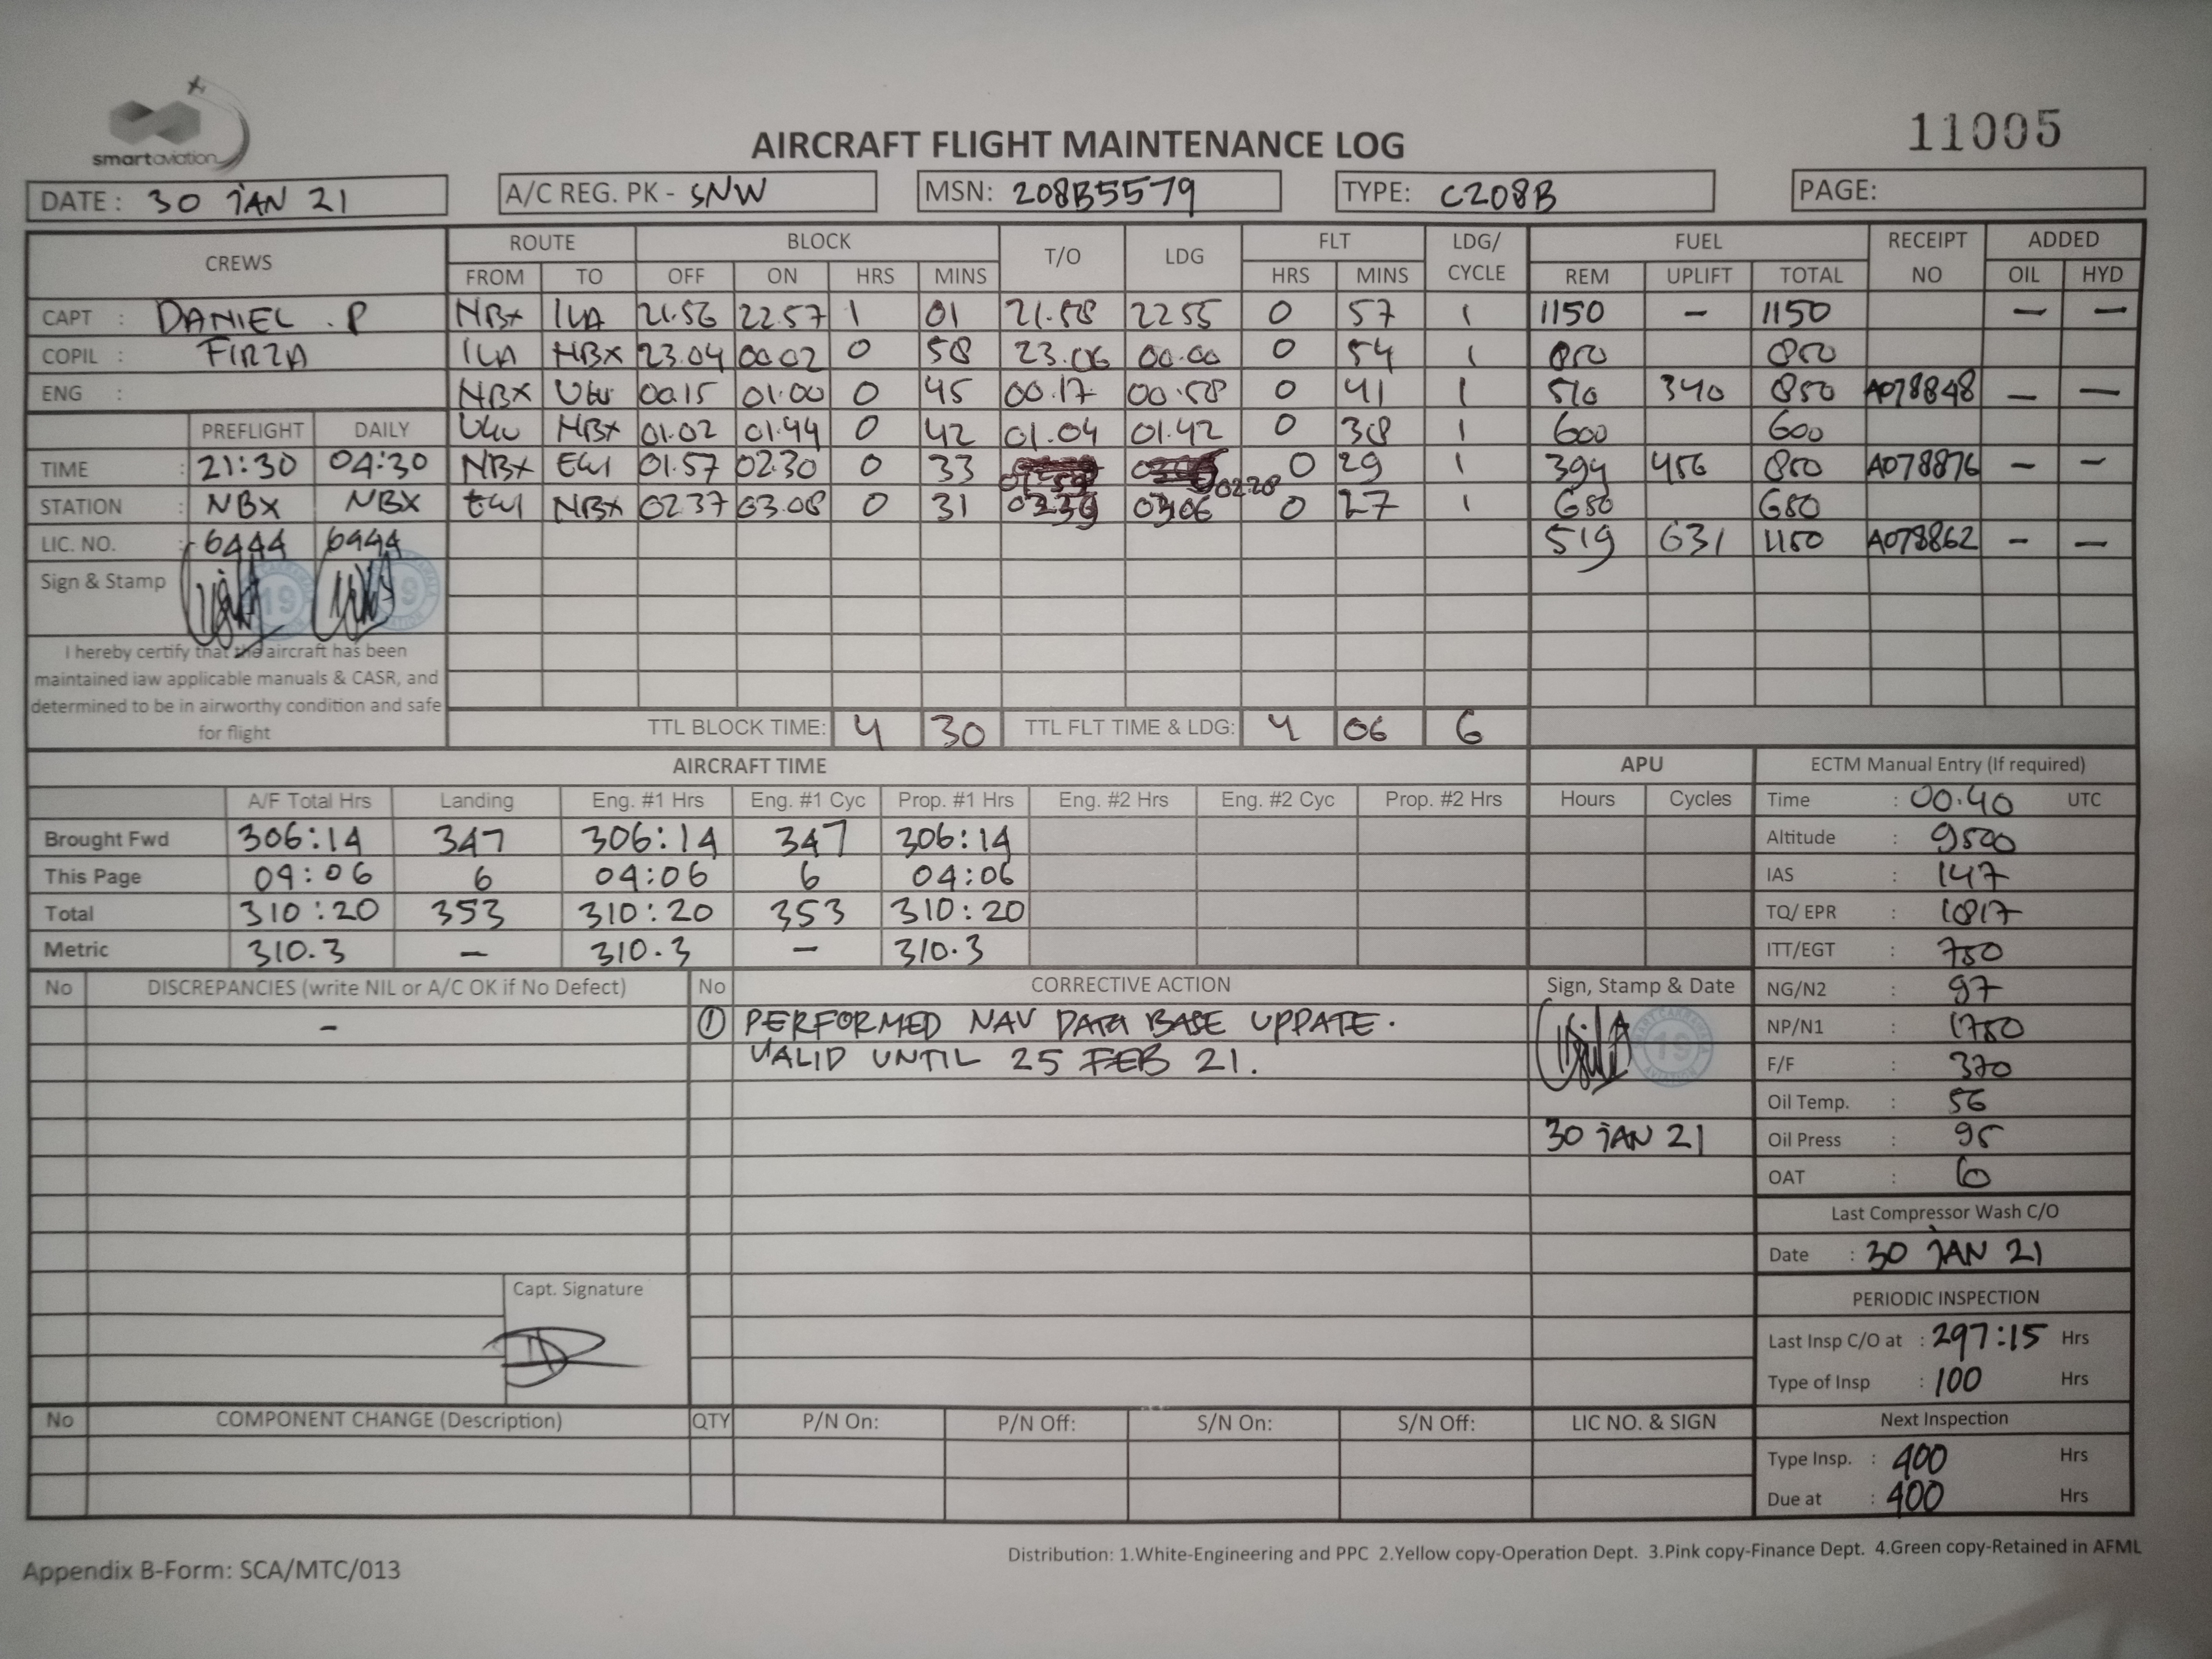 smartaviation
AIRCRAFT FLIGHT MAINTENANCE LOG
11005
DATE : 30 JAN 21 A/C REG. PK - SNW MSN: 208B5579 TYPE: C208B PAGE:
CREWS ROUTE BLOCK T/O LDG FLT LDG/ CYCLE FUEL RECEIPT NO ADDED
FROM TO OFF ON HRS MINS HRS MINS REM UPLIFT TOTAL OIL HYD
CAPT : DANIEL . P NBX ILA 21.56 22.57 1 01 21.58 22 55 0 57 1 1150 - 1150 - -
COPIL : FIRZA ILA NBX 23.04 00.02 0 58 23.06 00.00 0 54 1 850 850
ENG : NBX 00.15 01.00 0 45 00.17 00.58 0 41 1 510 340 850 A078848 - -
PREFLIGHT DAILY NBX 01.02 01.44 0 42 01.04 01.42 0 38 1 600 600
TIME : 21:30 04:30 NBX EWI 01.57 02.30 0 33 02.28 0 29 1 394 456 850 A078876 - -
STATION : NBX NBX EWI NBX 02 37 03.08 0 31 0 27 1 680 680
LIC. NO. : 6444 6444 519 631 1150 A078862 - -
Sign & Stamp 19 19
I hereby certify that the aircraft has been
maintained iaw applicable manuals & CASR, and
determined to be in airworthy condition and safe
for flight
TTL BLOCK TIME: 4 30 TTL FLT TIME & LDG: 4 06 6
AIRCRAFT TIME APU ECTM Manual Entry (If required)
A/F Total Hrs Landing Eng. #1 Hrs Eng. #1 Cyc Prop. #1 Hrs Eng. #2 Hrs Eng. #2 Cyc Prop. #2 Hrs Hours Cycles Time : 00.40 UTC
Brought Fwd 306:14 347 306:14 347 306:14 Altitude : 9500
This Page 04:06 6 04:06 6 04:06 IAS : 147
Total 310:20 353 310:20 353 310:20 TQ/ EPR : 1817
Metric 310.3 - 310.3 - 310.3 ITT/EGT : 750
No DISCREPANCIES (write NIL or A/C OK if No Defect) No CORRECTIVE ACTION Sign, Stamp & Date NG/N2 : 97
- ① PERFORMED NAV DATA BASE UPPATE. 19 NP/N1 : 1750
VALID UNTIL 25 FEB 21. F/F : 370
Oil Temp. : 56
30 JAN 21 Oil Press : 95
OAT : 6
Last Compressor Wash C/O
Date : 30 JAN 21
Capt. Signature
PERIODIC INSPECTION
Last Insp C/O at : 297:15 Hrs
Type of Insp : 100 Hrs
No COMPONENT CHANGE (Description) QTY P/N On: P/N Off: S/N On: S/N Off: LIC NO. & SIGN Next Inspection
Type Insp. : 400 Hrs
Due at : 400 Hrs
Appendix B-Form: SCA/MTC/013
Distribution: 1.White-Engineering and PPC 2.Yellow copy-Operation Dept. 3.Pink copy-Finance Dept. 4.Green copy-Retained in AFML